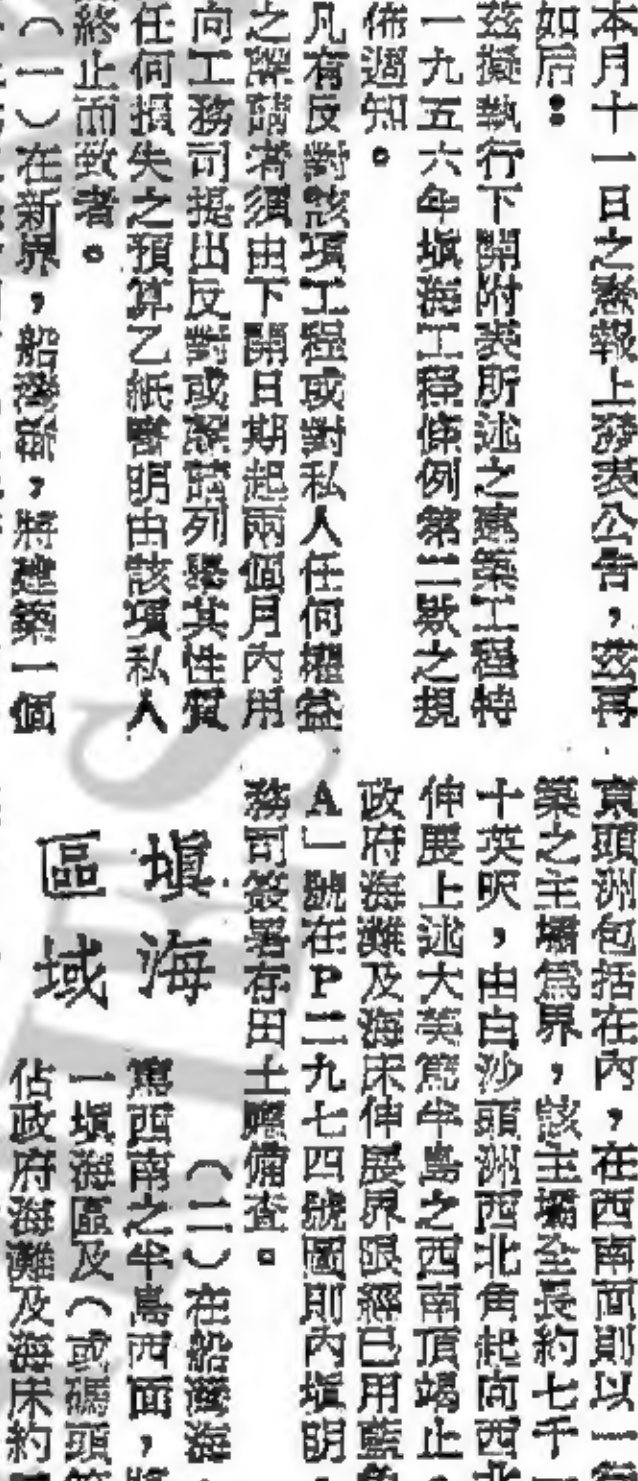 本月十一日之憲報上發表公告，茲再
如后：
茲擬執行下開附表所述之建築工程特
一九五六年塡海工程條例第二欵之規
佈週知。
凡有反對該項工程或對私人任何權益
之聲請者須由下開日期起兩個月內用
向工務司提出反對或聲請列舉其性質
任何損失之預算乙紙聲明由該項私人
終止而致者。
（一）在新界，船灣，將建築一個
頭洲包括在內，在西南面則以一
築之主壩爲界，該主壩全長約七千
十英呎，由白沙頭洲西北角起向西北
伸展上述大美篤半島之西南頂端止，
政府海灘及海床伸展界限經已用藍
A」號在P二九七四號圖則內塡明，
務司簽署存田土廳備查。
塡海
區域
（二）在船灣海，
篤西南之半島西面，將
一塡海區及（或碼頭
佔政府海灘及海床約